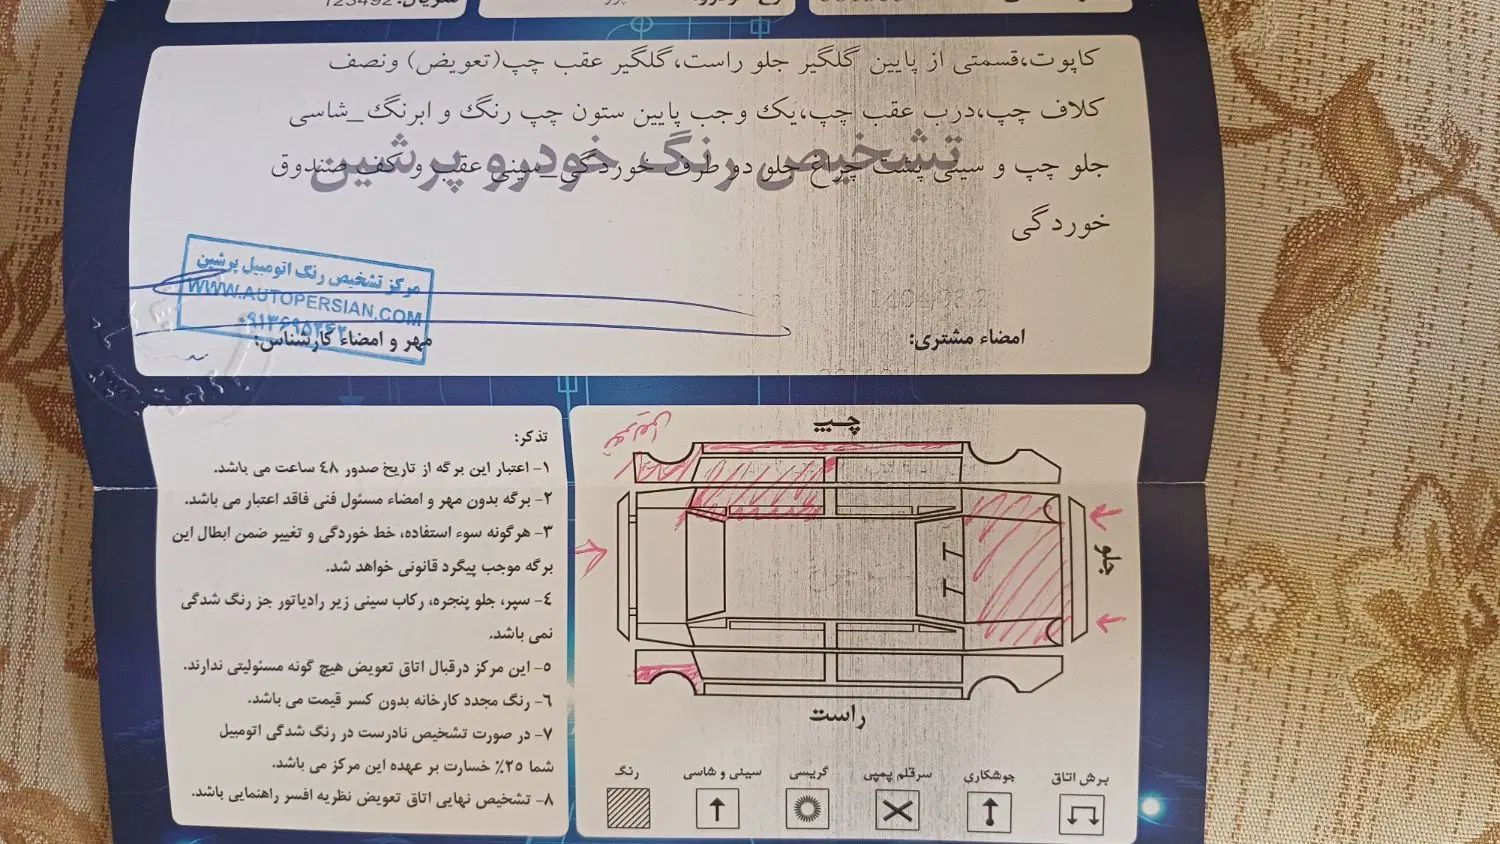 سریال: 123492
کاپوت،قسمتی از پایین گلگیر جلو راست،گلگیر عقب چپ(تعویض) ونصف
کلاف چپ،درب عقب چپ،یک وجب پایین ستون چپ رنگ و ابرنگ_شاسی
جلو چپ و سینی پشت چراغ جلو دو طرف خوردگی_سینی عقب و کف صندوق
خوردگی
تشخیص رنگ خودرو پرشین
مرکز تشخیص رنگ اتومبیل پرشین
WWW.AUTOPERSIAN.COM
امضاء مشتری:
مهر و امضاء کارشناس:
چپ
تعویض
جلو
راست
برش اتاق
جوشکاری
سرقلم پمپی
گریسی
سینی و شاسی
رنگ
تذکر:
۱- اعتبار این برگه از تاریخ صدور ٤٨ ساعت می باشد.
۲- برگه بدون مهر و امضاء مسئول فنی فاقد اعتبار می باشد.
۳- هرگونه سوء استفاده، خط خوردگی و تغییر ضمن ابطال این
برگه موجب پیگرد قانونی خواهد شد.
٤- سپر، جلو پنجره، رکاب سینی زیر رادیاتور جز رنگ شدگی
نمی باشد.
٥- این مرکز درقبال اتاق تعویض هیچ گونه مسئولیتی ندارند.
٦- رنگ مجدد کارخانه بدون کسر قیمت می باشد.
۷- در صورت تشخیص نادرست در رنگ شدگی اتومبیل
شما ۲۵٪ خسارت بر عهده این مرکز می باشد.
۸- تشخیص نهایی اتاق تعویض نظریه افسر راهنمایی باشد.